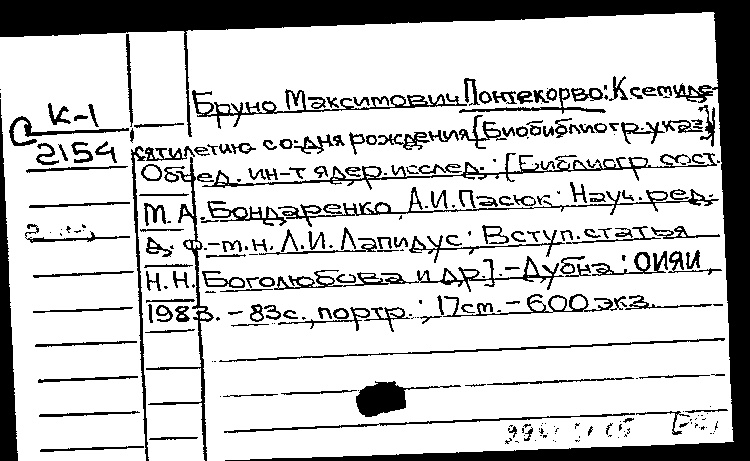 К-1
2154
Бруно Максимович Понтекорво: К семиде-
сятилетию со дня рождения [Биобиблиогр. указ.]/
Объед. ин-т ядер. исслед.; [Библиогр. сост.
М.А. Бондаренко, А.И. Пасюк; Науч. ред.
д. ф.-м.н. Л.И. Лапидус; Вступ. статья
Н.Н. Боголюбова и др.].-Дубна: ОИЯИ,
1983. - 83с., портр.; 17см. - 600 экз.